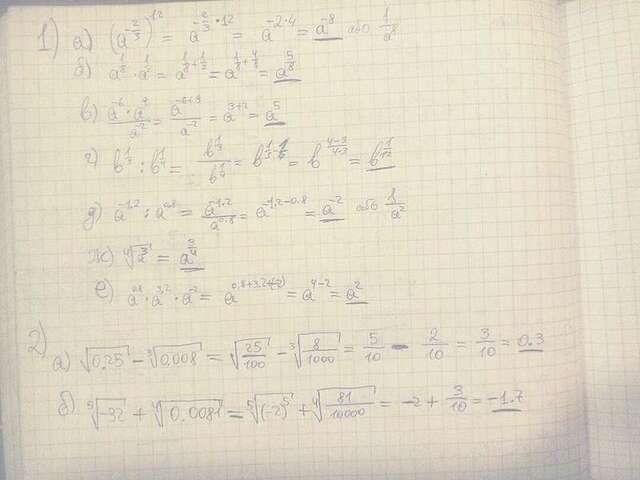 1) а) (a^{-2/3})^{12} = a^{-2/3·12} = a^{-2·4} = a^{-8} або 1/a^8
б) a^{1/8} · a^{1/2} = a^{1/8+1/2} = a^{1/8+4/8} = a^{5/8}
в) a^{-6}·a^9/a^{-2} = a^{-6+9}/a^{-2} = a^{3+2} = a^5
г) b^{1/3} : b^{1/4} = b^{1/3}/b^{1/4} = b^{1/3-1/4} = b^{(4-3)/(4·3)} = b^{1/12}
д) a^{-1,2} : a^{0,8} = a^{-1,2}/a^{0,8} = a^{-1,2-0,8} = a^{-2} або 1/a^2
ж) = a^{3/4}
е) a^{0,8} · a^{3,2} · a^{-2} = a^{0,8+3,2+(-2)} = a^{4-2} = a^2
2)
а) √0.25 - ∛0,008 = √(25/100) - ∛(8/1000) = 5/10 - 2/10 = 3/10 = 0.3
б) ⁵√-32 + ⁴√0,0081 = ⁵√(-2)^5 + ⁴√(81/10000) = -2 + 3/10 = -1.7